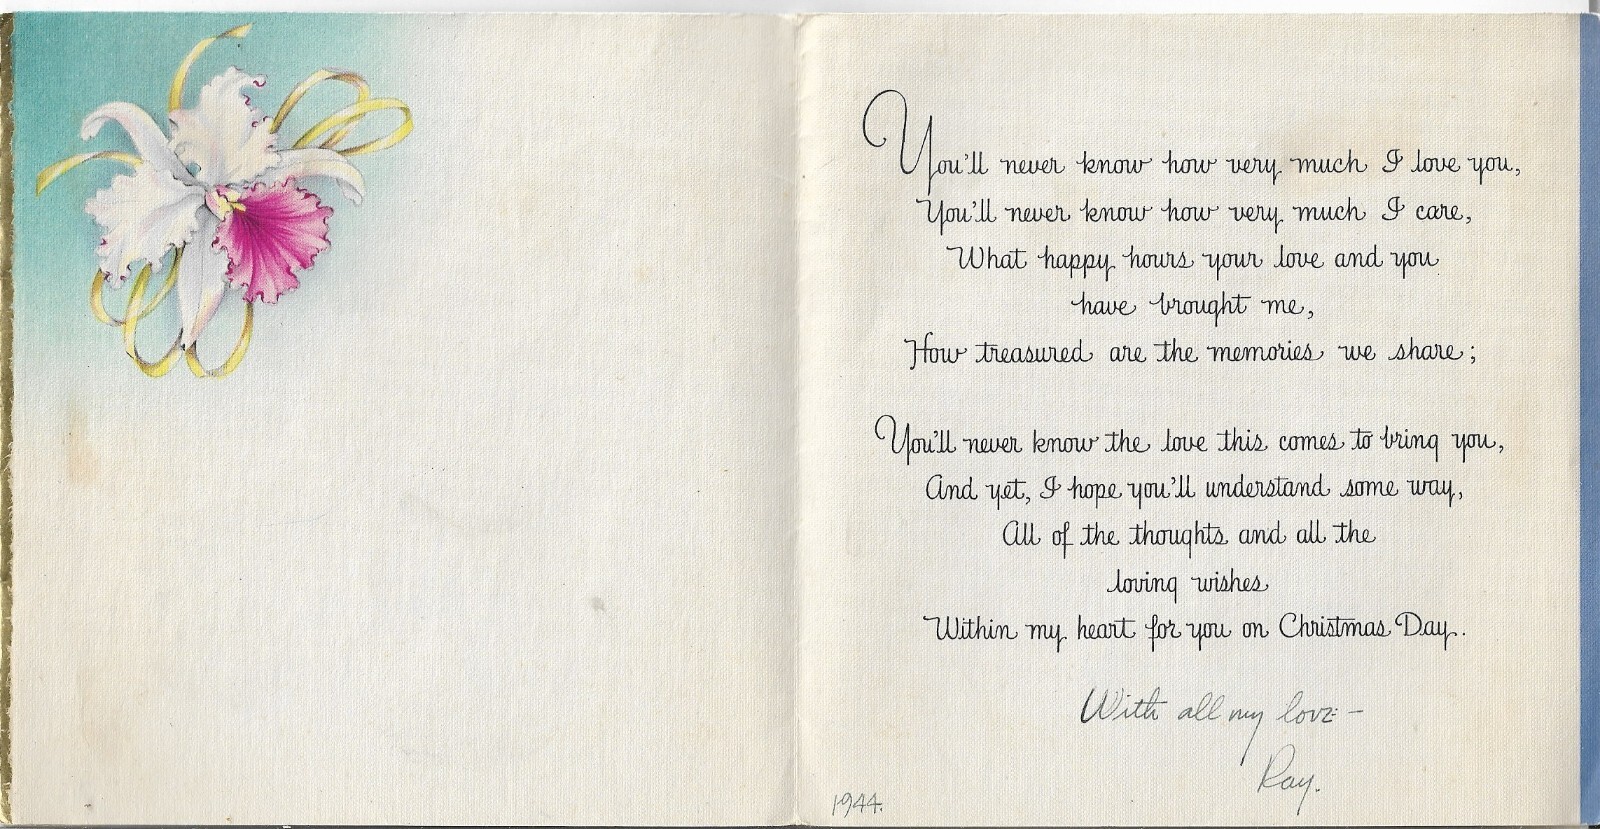 You'll never know how very much I love you,
You'll never know how very much I care,
What happy hours your love and you
have brought me,
How treasured are the memories we share;
You'll never know the love this comes to bring you,
And yet, I hope you'll understand some way,
All of the thoughts and all the
loving wishes
Within my heart for you on Christmas Day.
With all my love -
Ray.
1944.